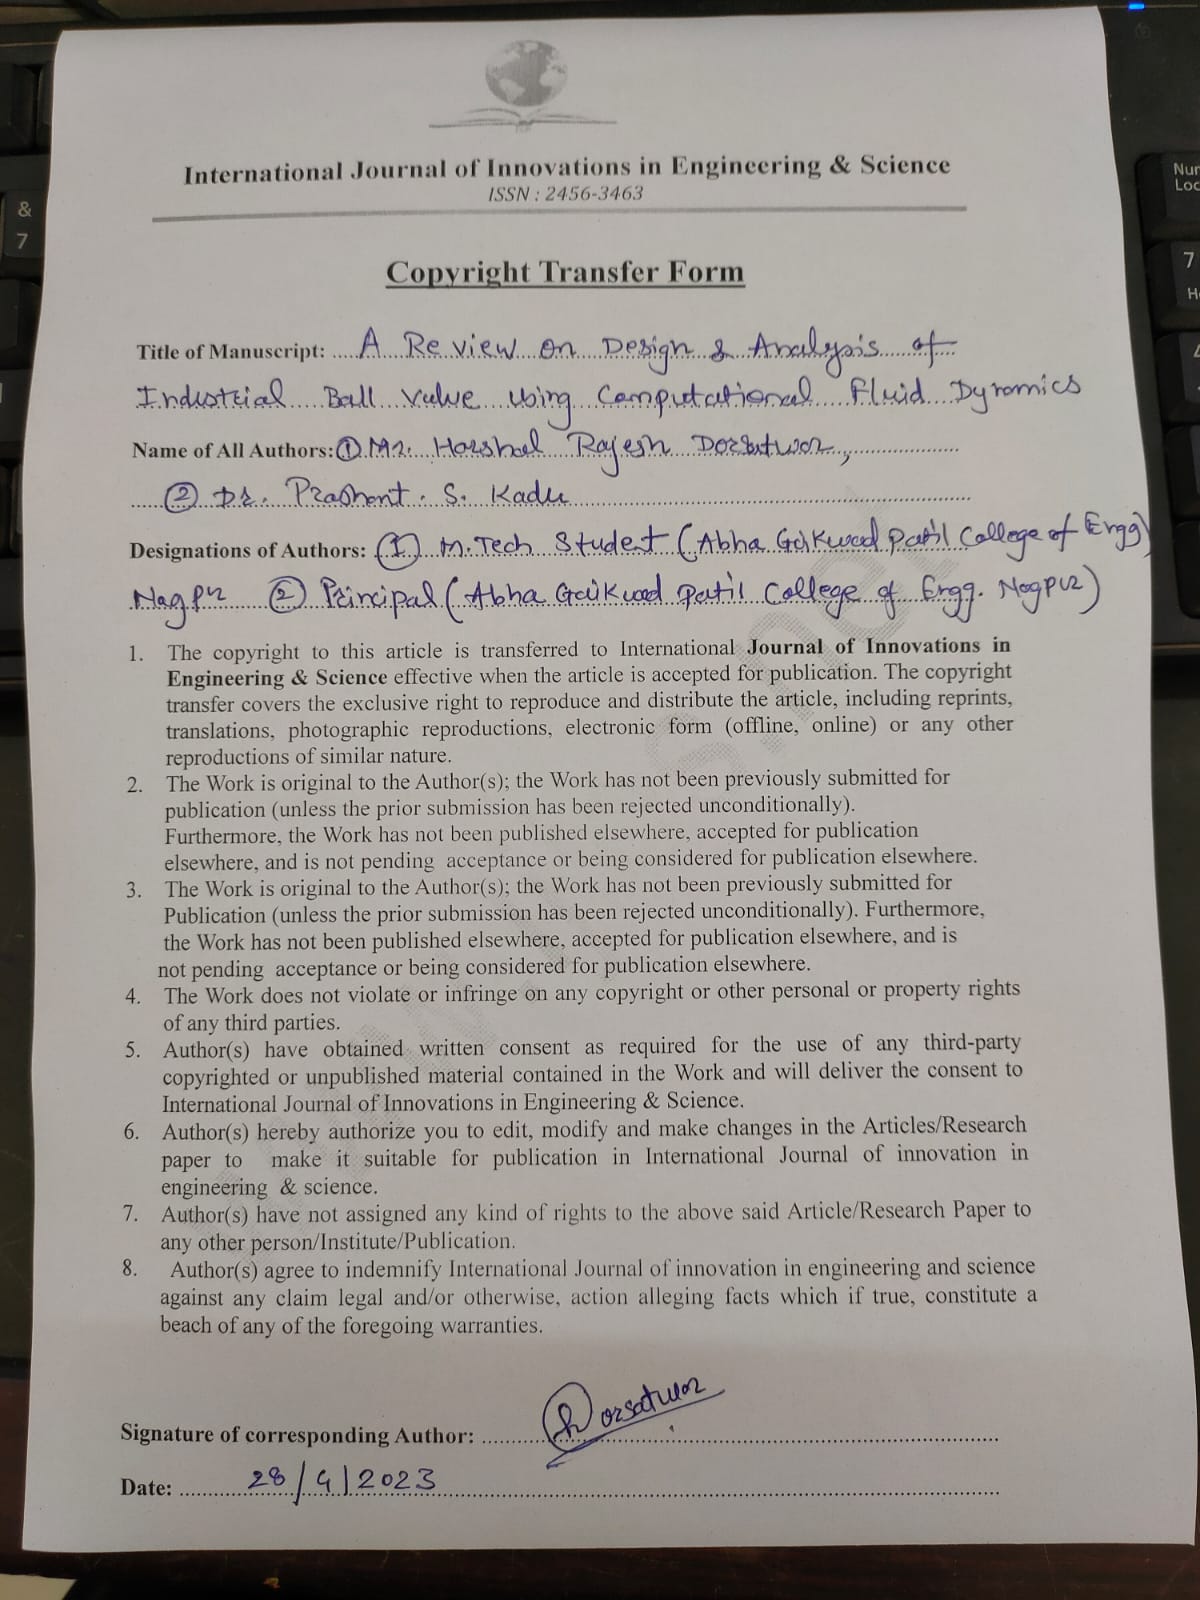 International Journal of Innovations in Engineering & Science
ISSN : 2456-3463
Copyright Transfer Form
Title of Manuscript: A Review on Design & Analysis of
Industrial Ball valve using Computational Fluid Dynamics
Name of All Authors: ① Mr. Harshal Rajesh Dorsatwar,
② Dr. Prashant . S. Kadu
Designations of Authors: ① M.Tech Student (Abha Gaikwad Patil College of Engg)
Nagpur ② Principal (Abha Gaikwad Patil College of Engg. Nagpur)
1. The copyright to this article is transferred to International Journal of Innovations in
Engineering & Science effective when the article is accepted for publication. The copyright
transfer covers the exclusive right to reproduce and distribute the article, including reprints,
translations, photographic reproductions, electronic form (offline, online) or any other
reproductions of similar nature.
2. The Work is original to the Author(s); the Work has not been previously submitted for
publication (unless the prior submission has been rejected unconditionally).
Furthermore, the Work has not been published elsewhere, accepted for publication
elsewhere, and is not pending acceptance or being considered for publication elsewhere.
3. The Work is original to the Author(s); the Work has not been previously submitted for
Publication (unless the prior submission has been rejected unconditionally). Furthermore,
the Work has not been published elsewhere, accepted for publication elsewhere, and is
not pending acceptance or being considered for publication elsewhere.
4. The Work does not violate or infringe on any copyright or other personal or property rights
of any third parties.
5. Author(s) have obtained written consent as required for the use of any third-party
copyrighted or unpublished material contained in the Work and will deliver the consent to
International Journal of Innovations in Engineering & Science.
6. Author(s) hereby authorize you to edit, modify and make changes in the Articles/Research
paper to make it suitable for publication in International Journal of innovation in
engineering & science.
7. Author(s) have not assigned any kind of rights to the above said Article/Research Paper to
any other person/Institute/Publication.
8. Author(s) agree to indemnify International Journal of innovation in engineering and science
against any claim legal and/or otherwise, action alleging facts which if true, constitute a
beach of any of the foregoing warranties.
Signature of corresponding Author: Dorsatwar
Date: 28/4/2023
&
7
7